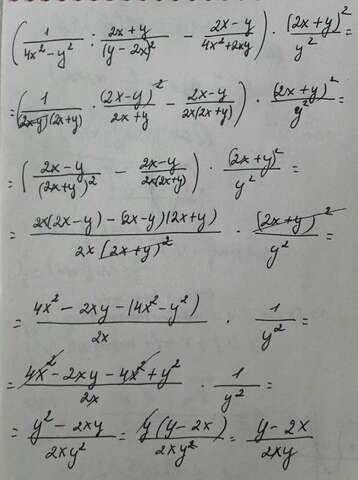 (1/(4x²-y²) : (2x+y)/(y-2x)² - (2x-y)/(4x²+2xy)) · (2x+y)²/y² =
= (1/((2x-y)(2x+y)) · (2x-y)²/(2x+y) - (2x-y)/(2x(2x+y))) · (2x+y)²/y² =
= ((2x-y)/(2x+y)² - (2x-y)/(2x(2x+y))) · (2x+y)²/y² =
= (2x(2x-y) - (2x-y)(2x+y))/(2x(2x+y)²) · (2x+y)²/y² =
= (4x² - 2xy - (4x² - y²))/(2x) · 1/y² =
= (4x² - 2xy - 4x² + y²)/(2x) · 1/y² =
= (y² - 2xy)/(2xy²) = (y(y - 2x))/(2xy²) = (y - 2x)/(2xy)